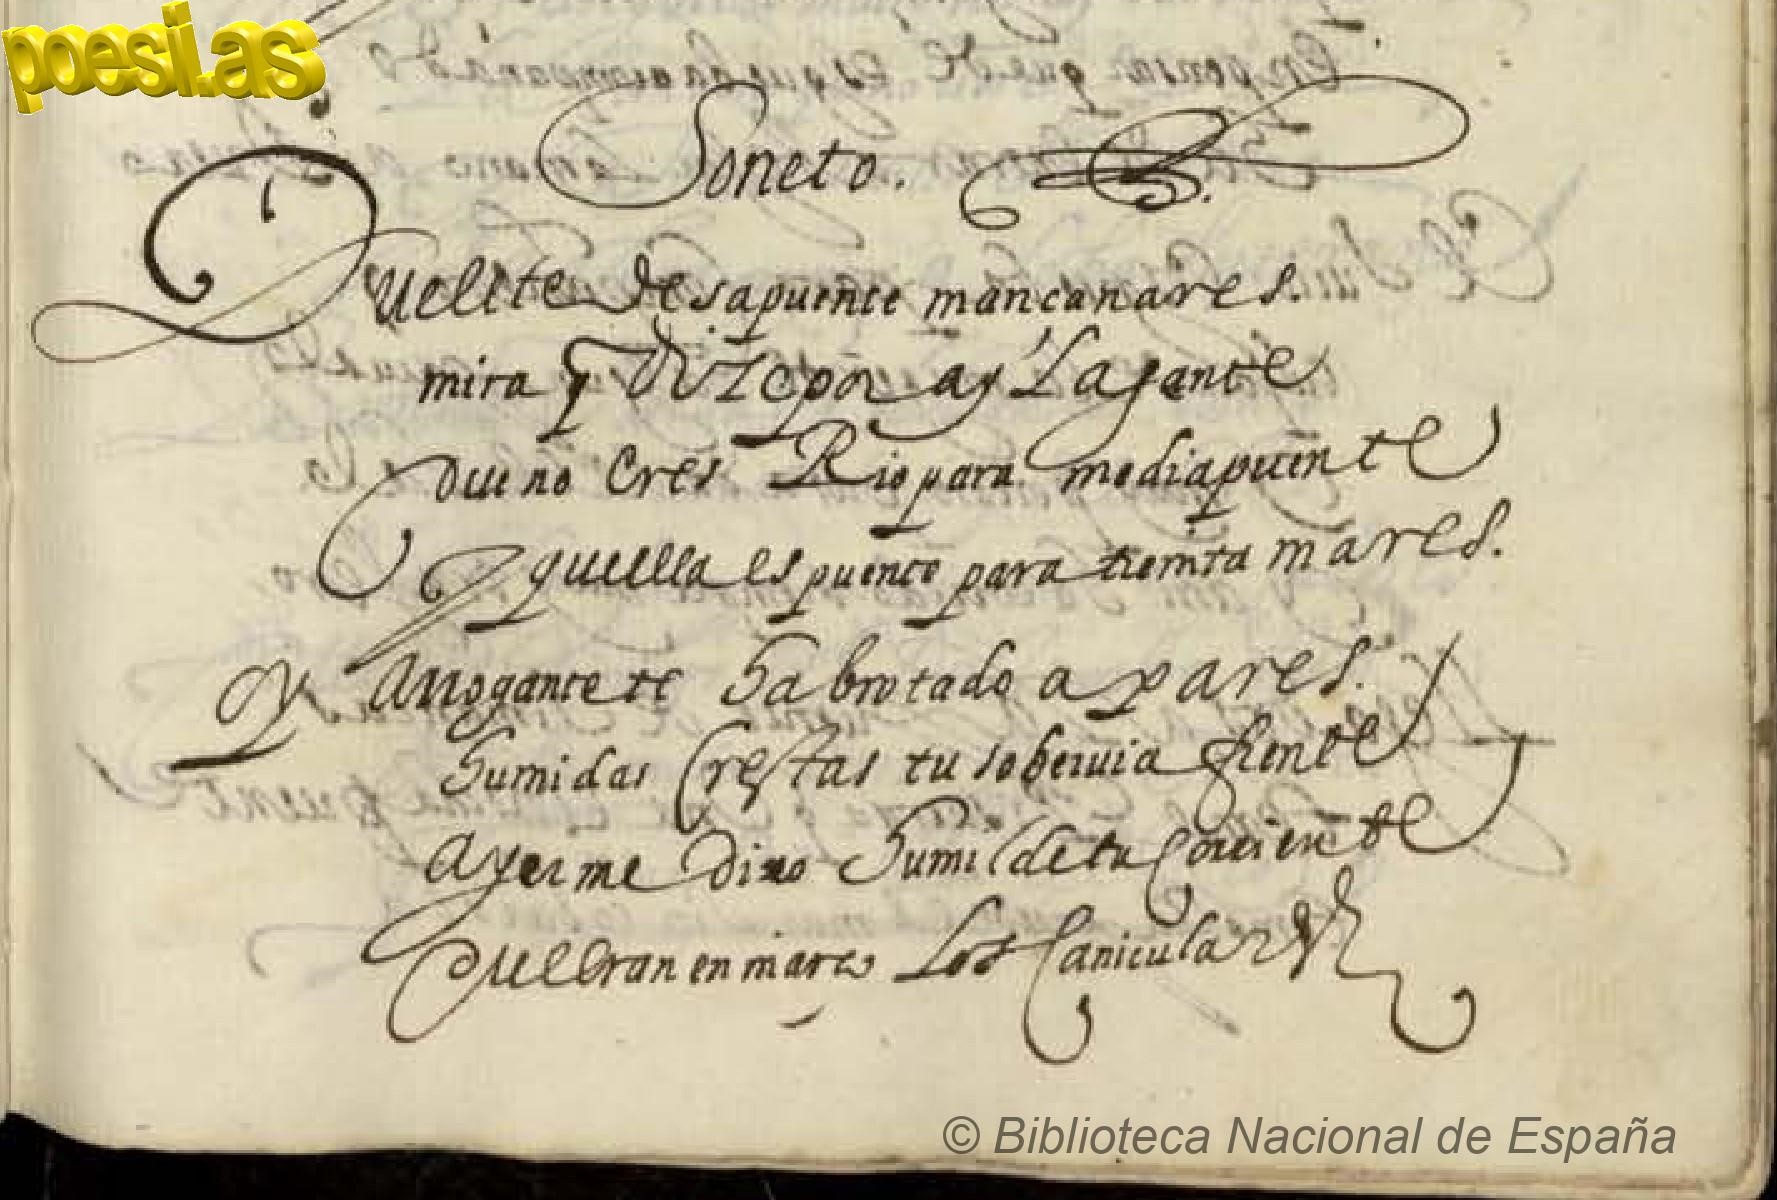 poesi.as
Soneto.
Duelete de sa puente mancanares.
mira q dize por ay la gente
que no eres Rio para media puente
y quella es puente para treinta mares.
oy arrogante te ha brotado a pares.
humidas crestas tu soberuia frente
ayer me dixo humilde tu corriente
que eran en março los canicular
© Biblioteca Nacional de España